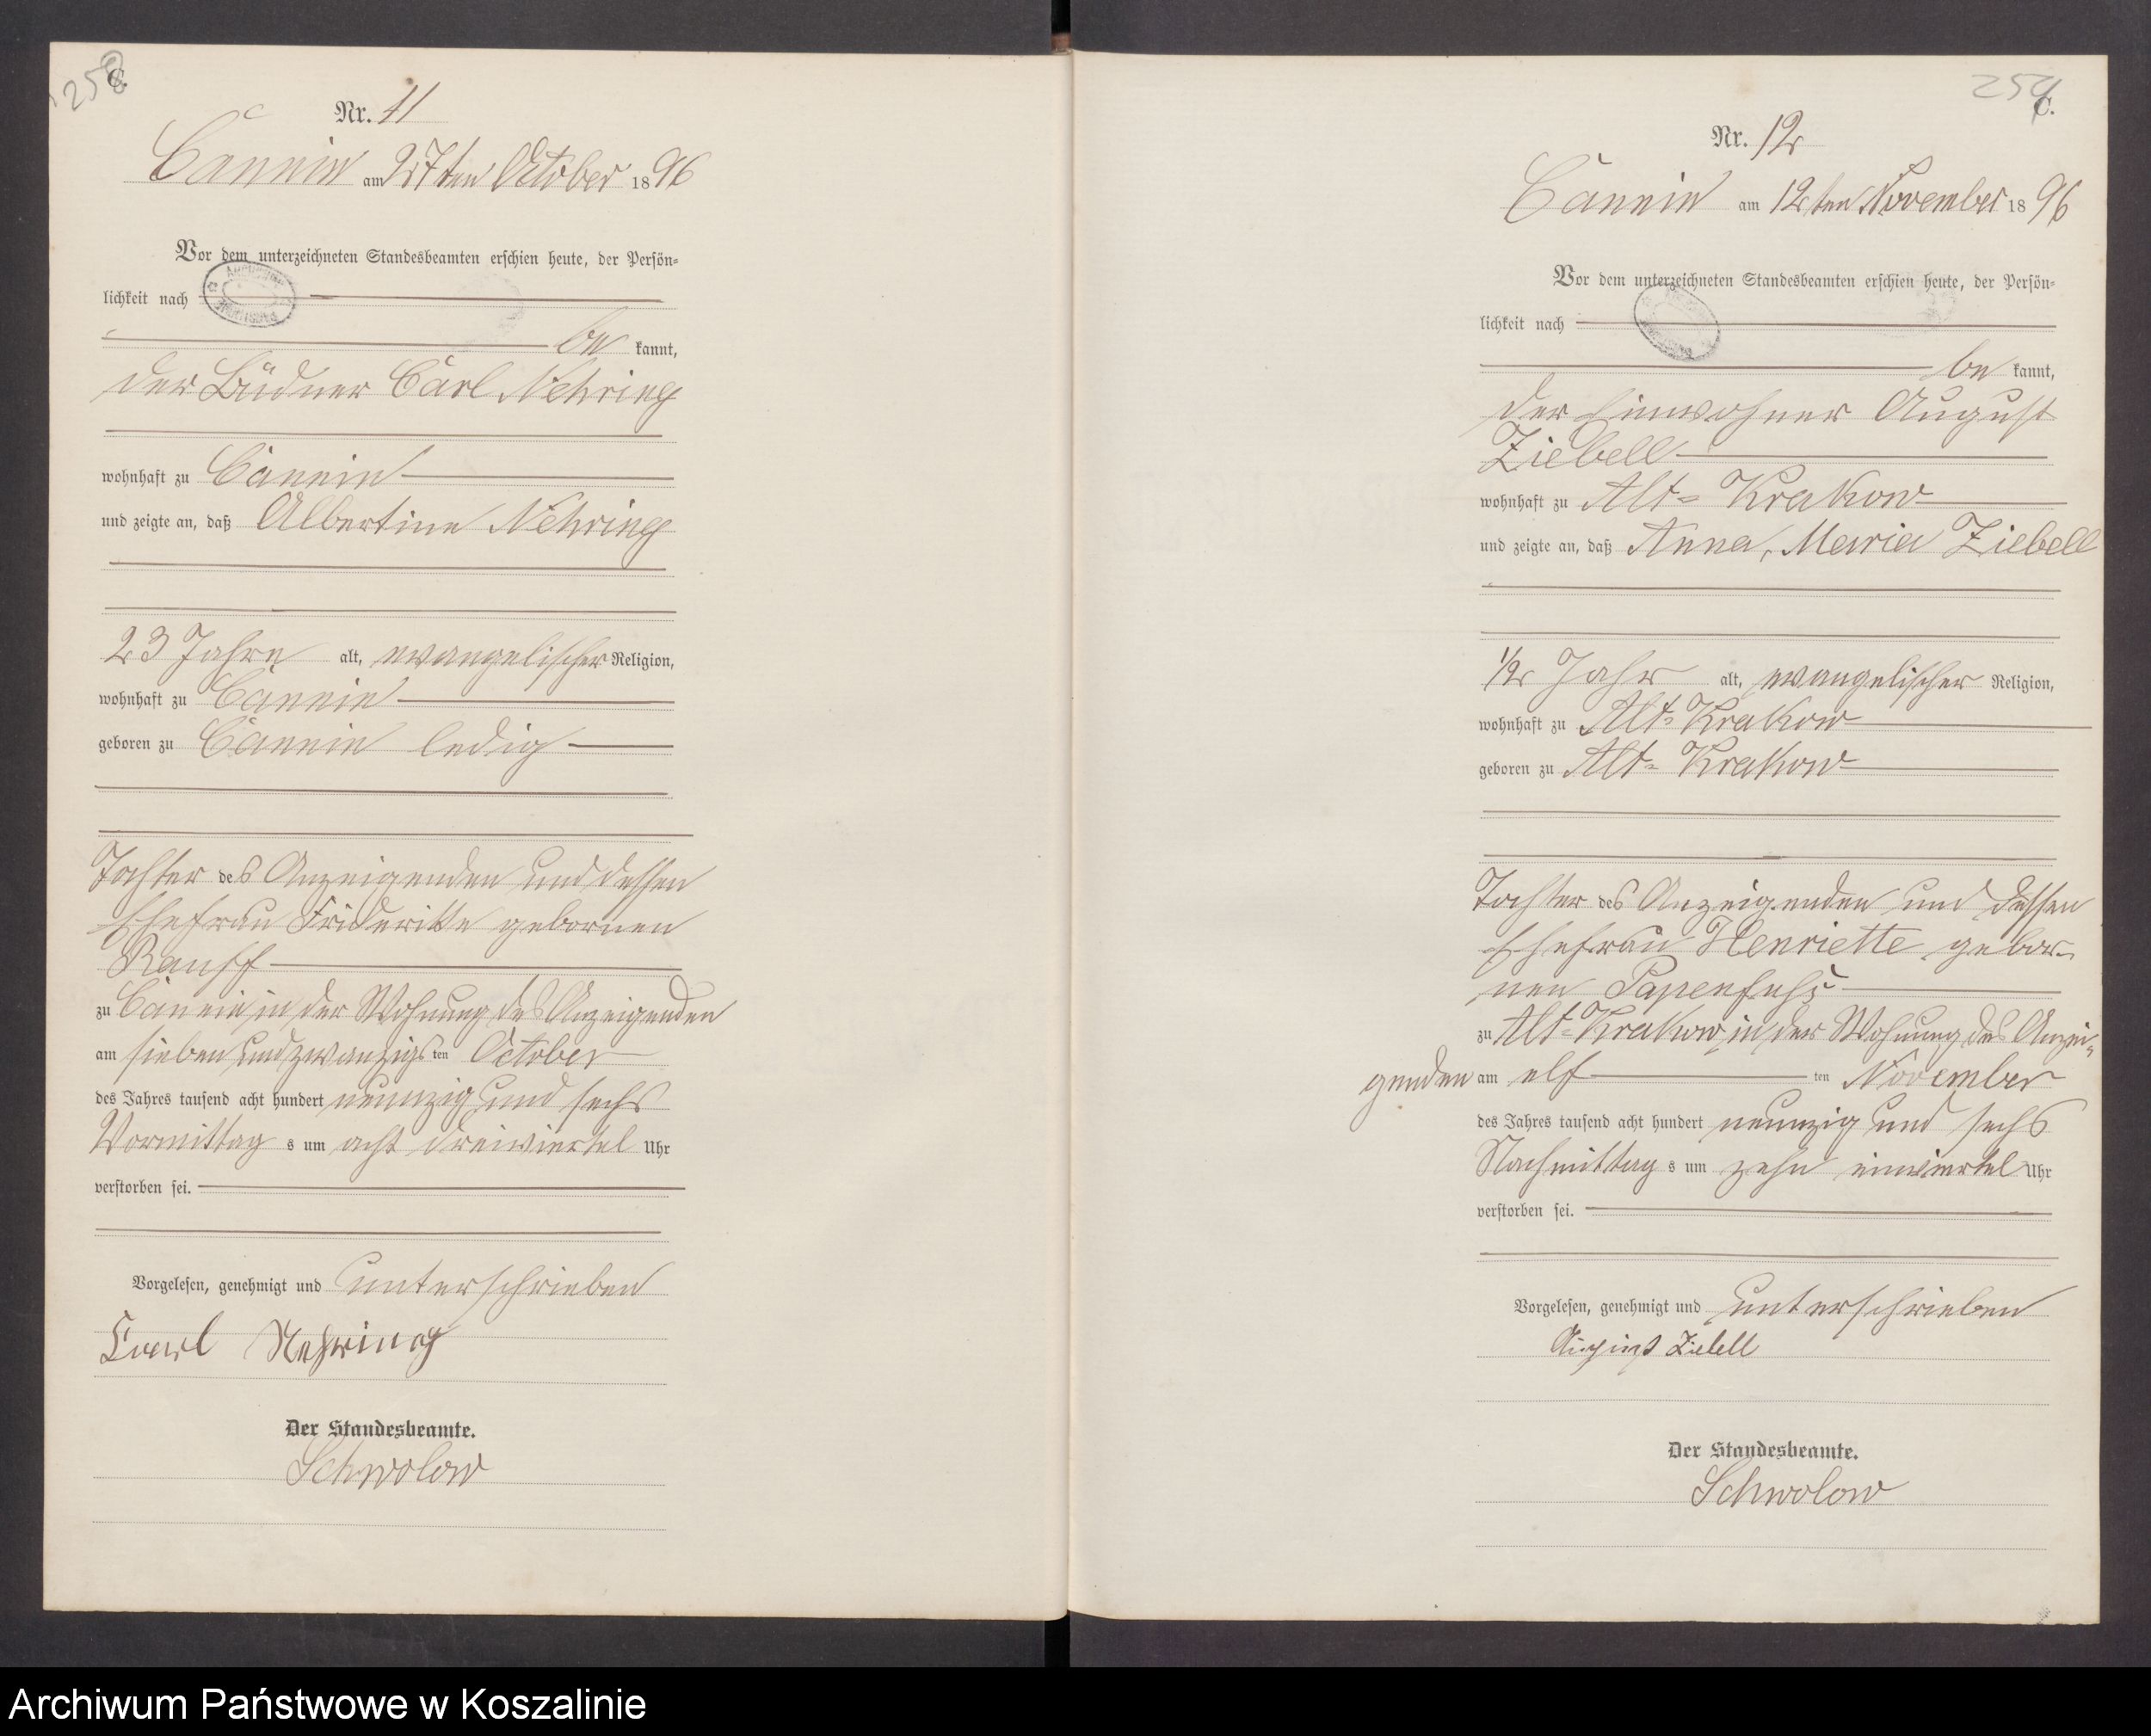 258
C.
Nr. 11
Cannin am 27ten October 1896
Vor dem unterzeichneten Standesbeamten erschien heute, der Persön-
lichkeit nach
be kannt,
der Büdner Carl Nehring
wohnhaft zu Cannin
und zeigte an, daß Albertine Nehring
23 Jahre alt, evangelischer Religion,
wohnhaft zu Cannin
geboren zu Cannin ledig
Tochter des Anzeigenden und dessen
Ehefrau Friderikke gebornen
Rauff
zu Cannin in der Wohnung des Anzeigenden
am sieben und zwanzigsten October
des Jahres tausend acht hundert neunzig und sechs
Vormittag s um acht dreiviertel Uhr
verstorben sei.
Vorgelesen, genehmigt und unterschrieben
Carl Nehring
Der Standesbeamte.
Schwolow
259
C.
Nr. 12
Cannin am 12ten November 1896
Vor dem unterzeichneten Standesbeamten erschien heute, der Persön-
lichkeit nach
be kannt,
der Einwohner August
Ziebell
wohnhaft zu Alt= Krakow
und zeigte an, daß Anna, Maria Ziebell
1/2 Jahr alt, evangelischer Religion,
wohnhaft zu Alt= Krakow
geboren zu Alt= Krakow
Tochter des Anzeigenden und dessen
Ehefrau Henriette gebor-
nen Papenfuhs
zu Alt= Krakow in der Wohnung des Anzei-
genden am elf ten November
des Jahres tausend acht hundert neunzig und sechs
Nachmittag s um zehn einviertel Uhr
verstorben sei.
Vorgelesen, genehmigt und unterschrieben
August Ziebell
Der Standesbeamte.
Schwolow
Archiwum Państwowe w Koszalinie